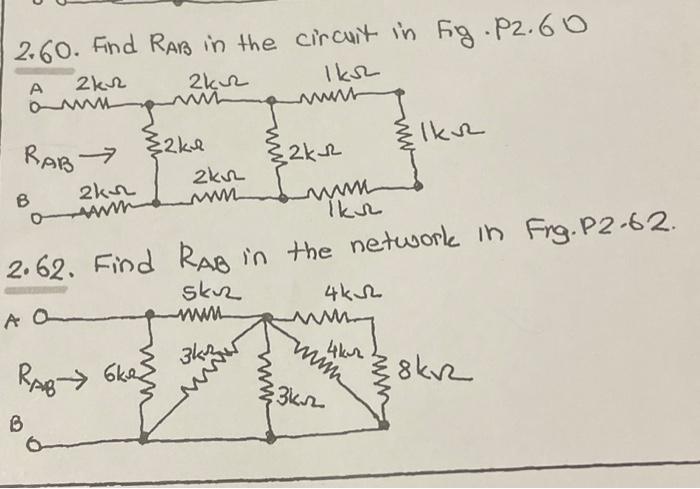 2.60. Find RAB in the circuit in Fig. P2.60
A 2kΩ 2kΩ 1kΩ
RAB → 2kΩ 2kΩ 1kΩ
B 2kΩ 2kΩ 1kΩ
2.62. Find RAB in the network in Fig. P2-62.
5kΩ 4kΩ
A
RAB → 6kΩ 3kΩ 3kΩ 4kΩ 8kΩ
B